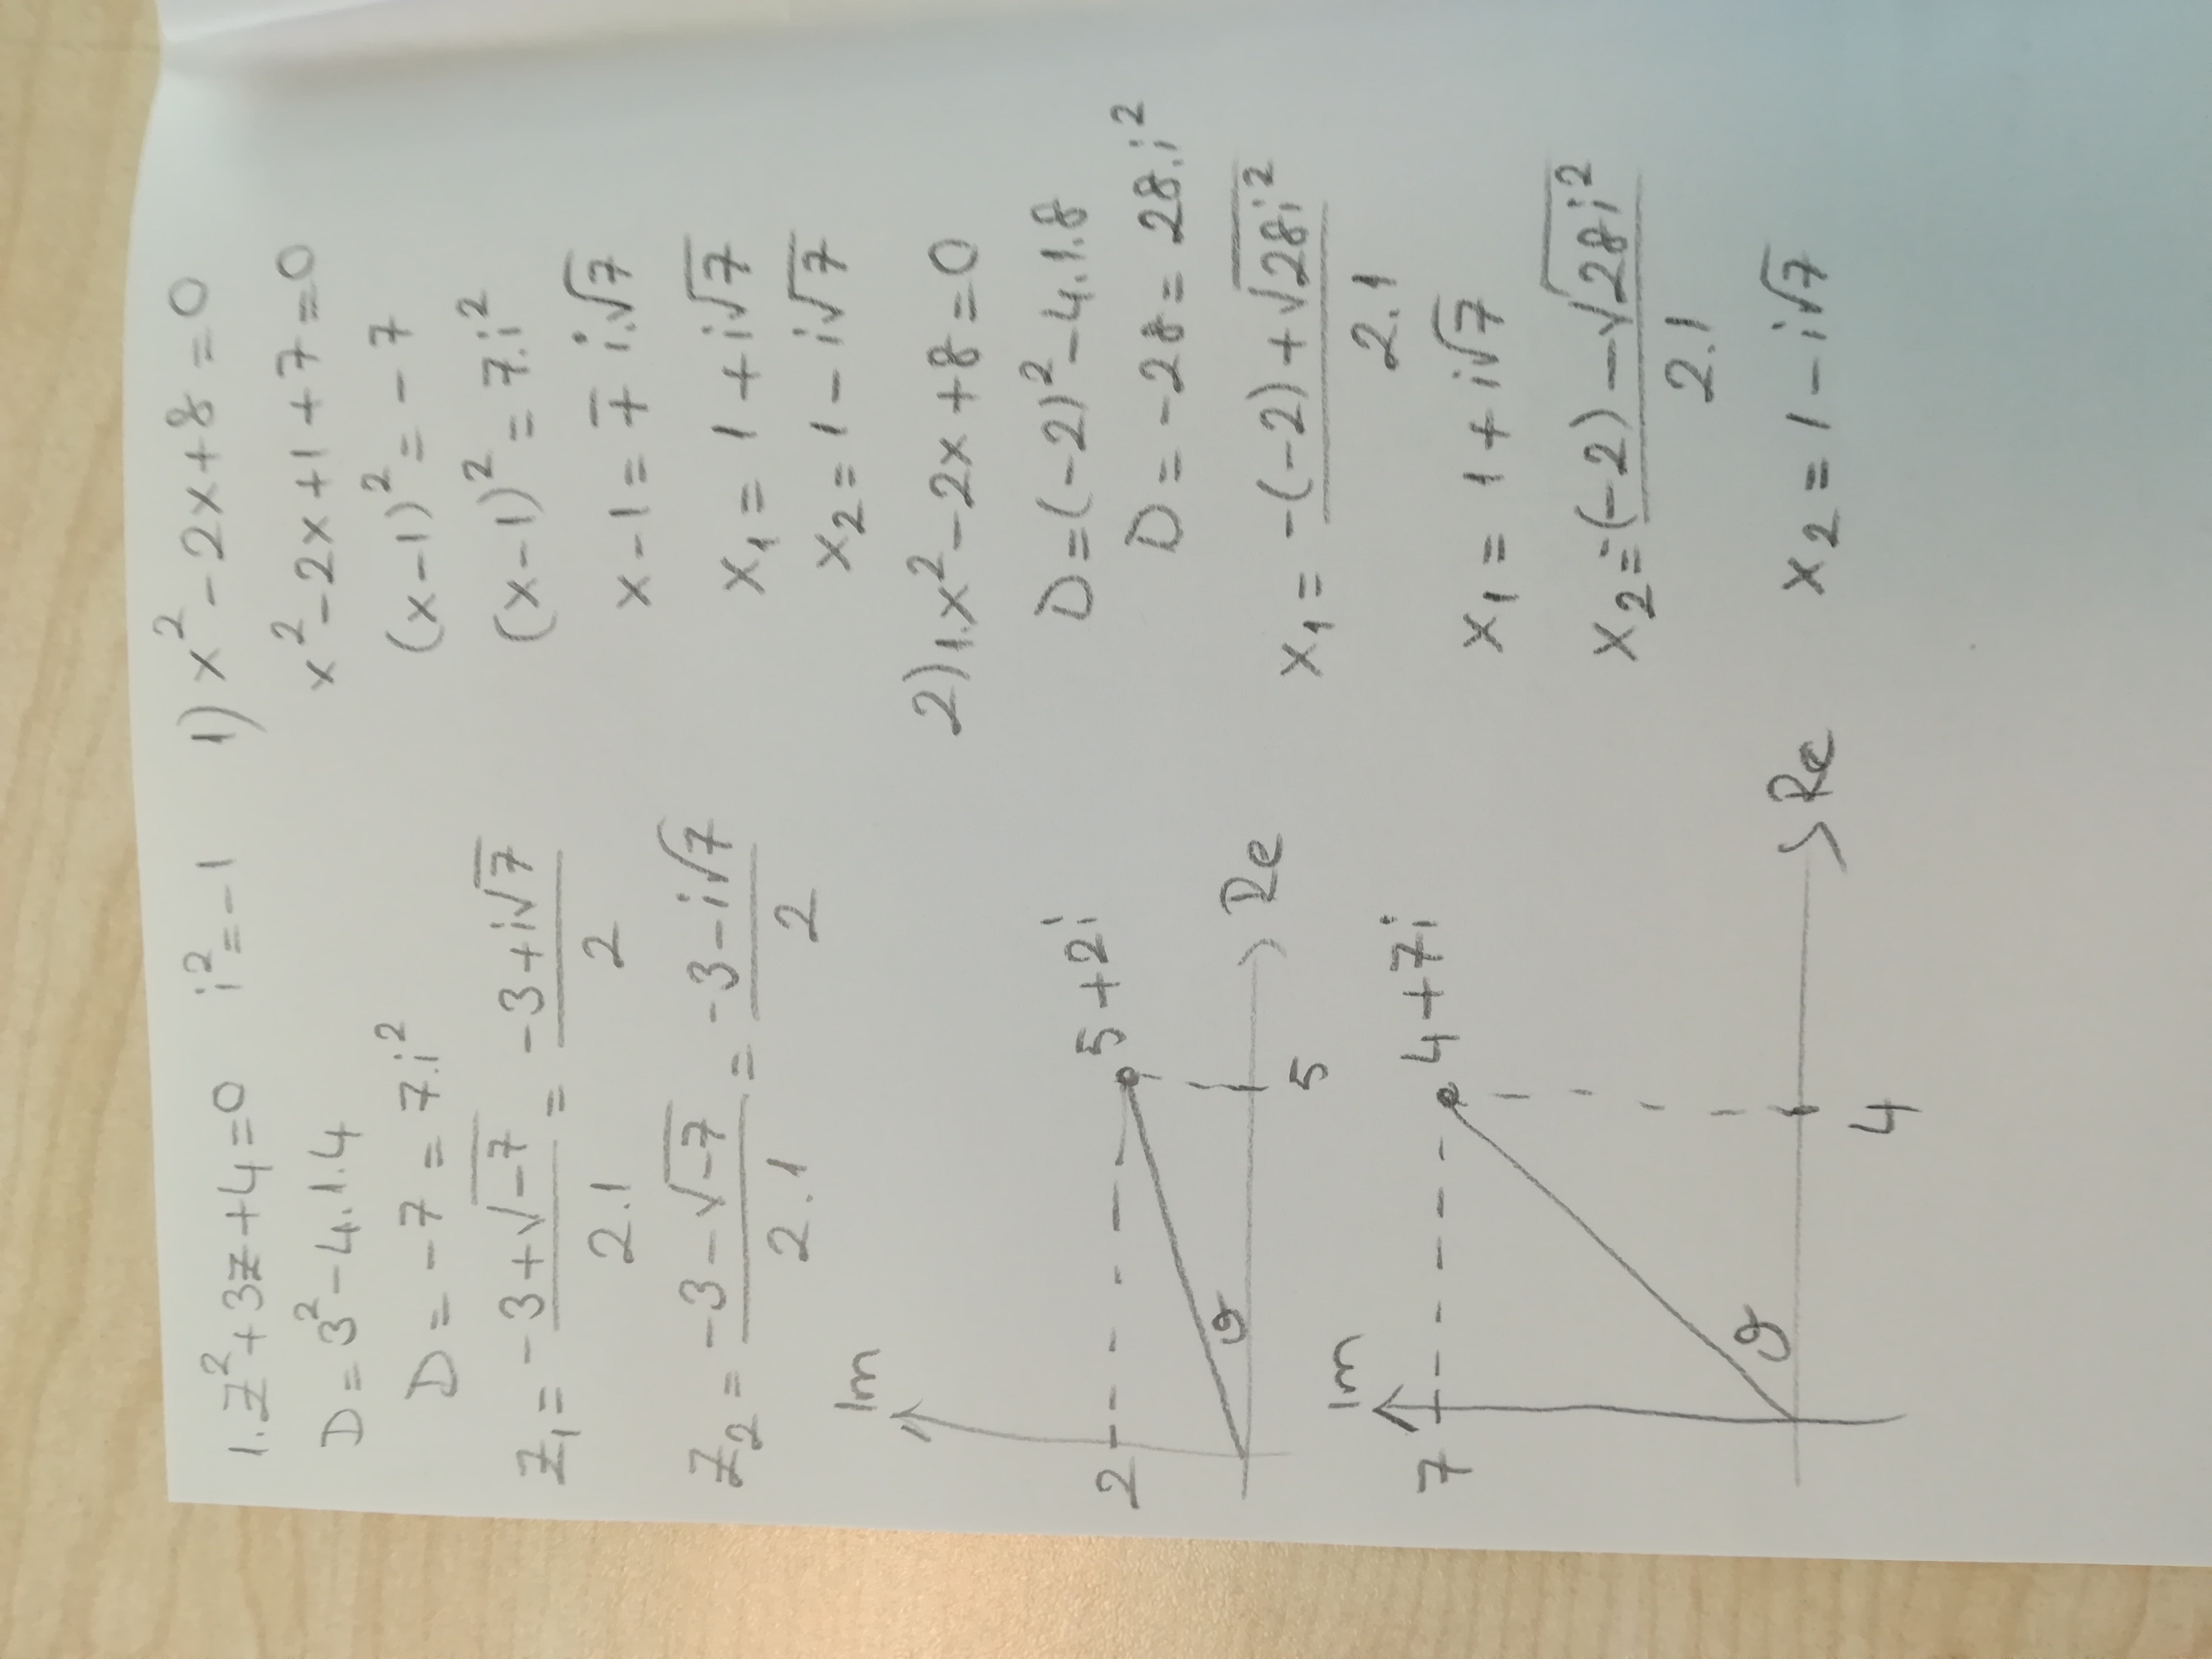 1.z²+3z+4=0 i²=-1
D=3²-4.1.4
D=-7=7.i²
z₁=(-3+√-7)/2.1=(-3+i√7)/2
z₂=(-3-√-7)/2.1=(-3-i√7)/2
Im
2
5+2i
φ
5
Re
Im
7
4+7i
φ
4
Re
1) x²-2x+8=0
x²-2x+1+7=0
(x-1)²=-7
(x-1)²=7.i²
x-1=∓i√7
x₁=1+i√7
x₂=1-i√7
2) 1.x²-2x+8=0
D=(-2)²-4.1.8
D=-28=28.i²
x₁=(-(-2)+√28i²)/2.1
x₁=1+i√7
x₂=(-(-2)-√28i²)/2.1
x₂=1-i√7